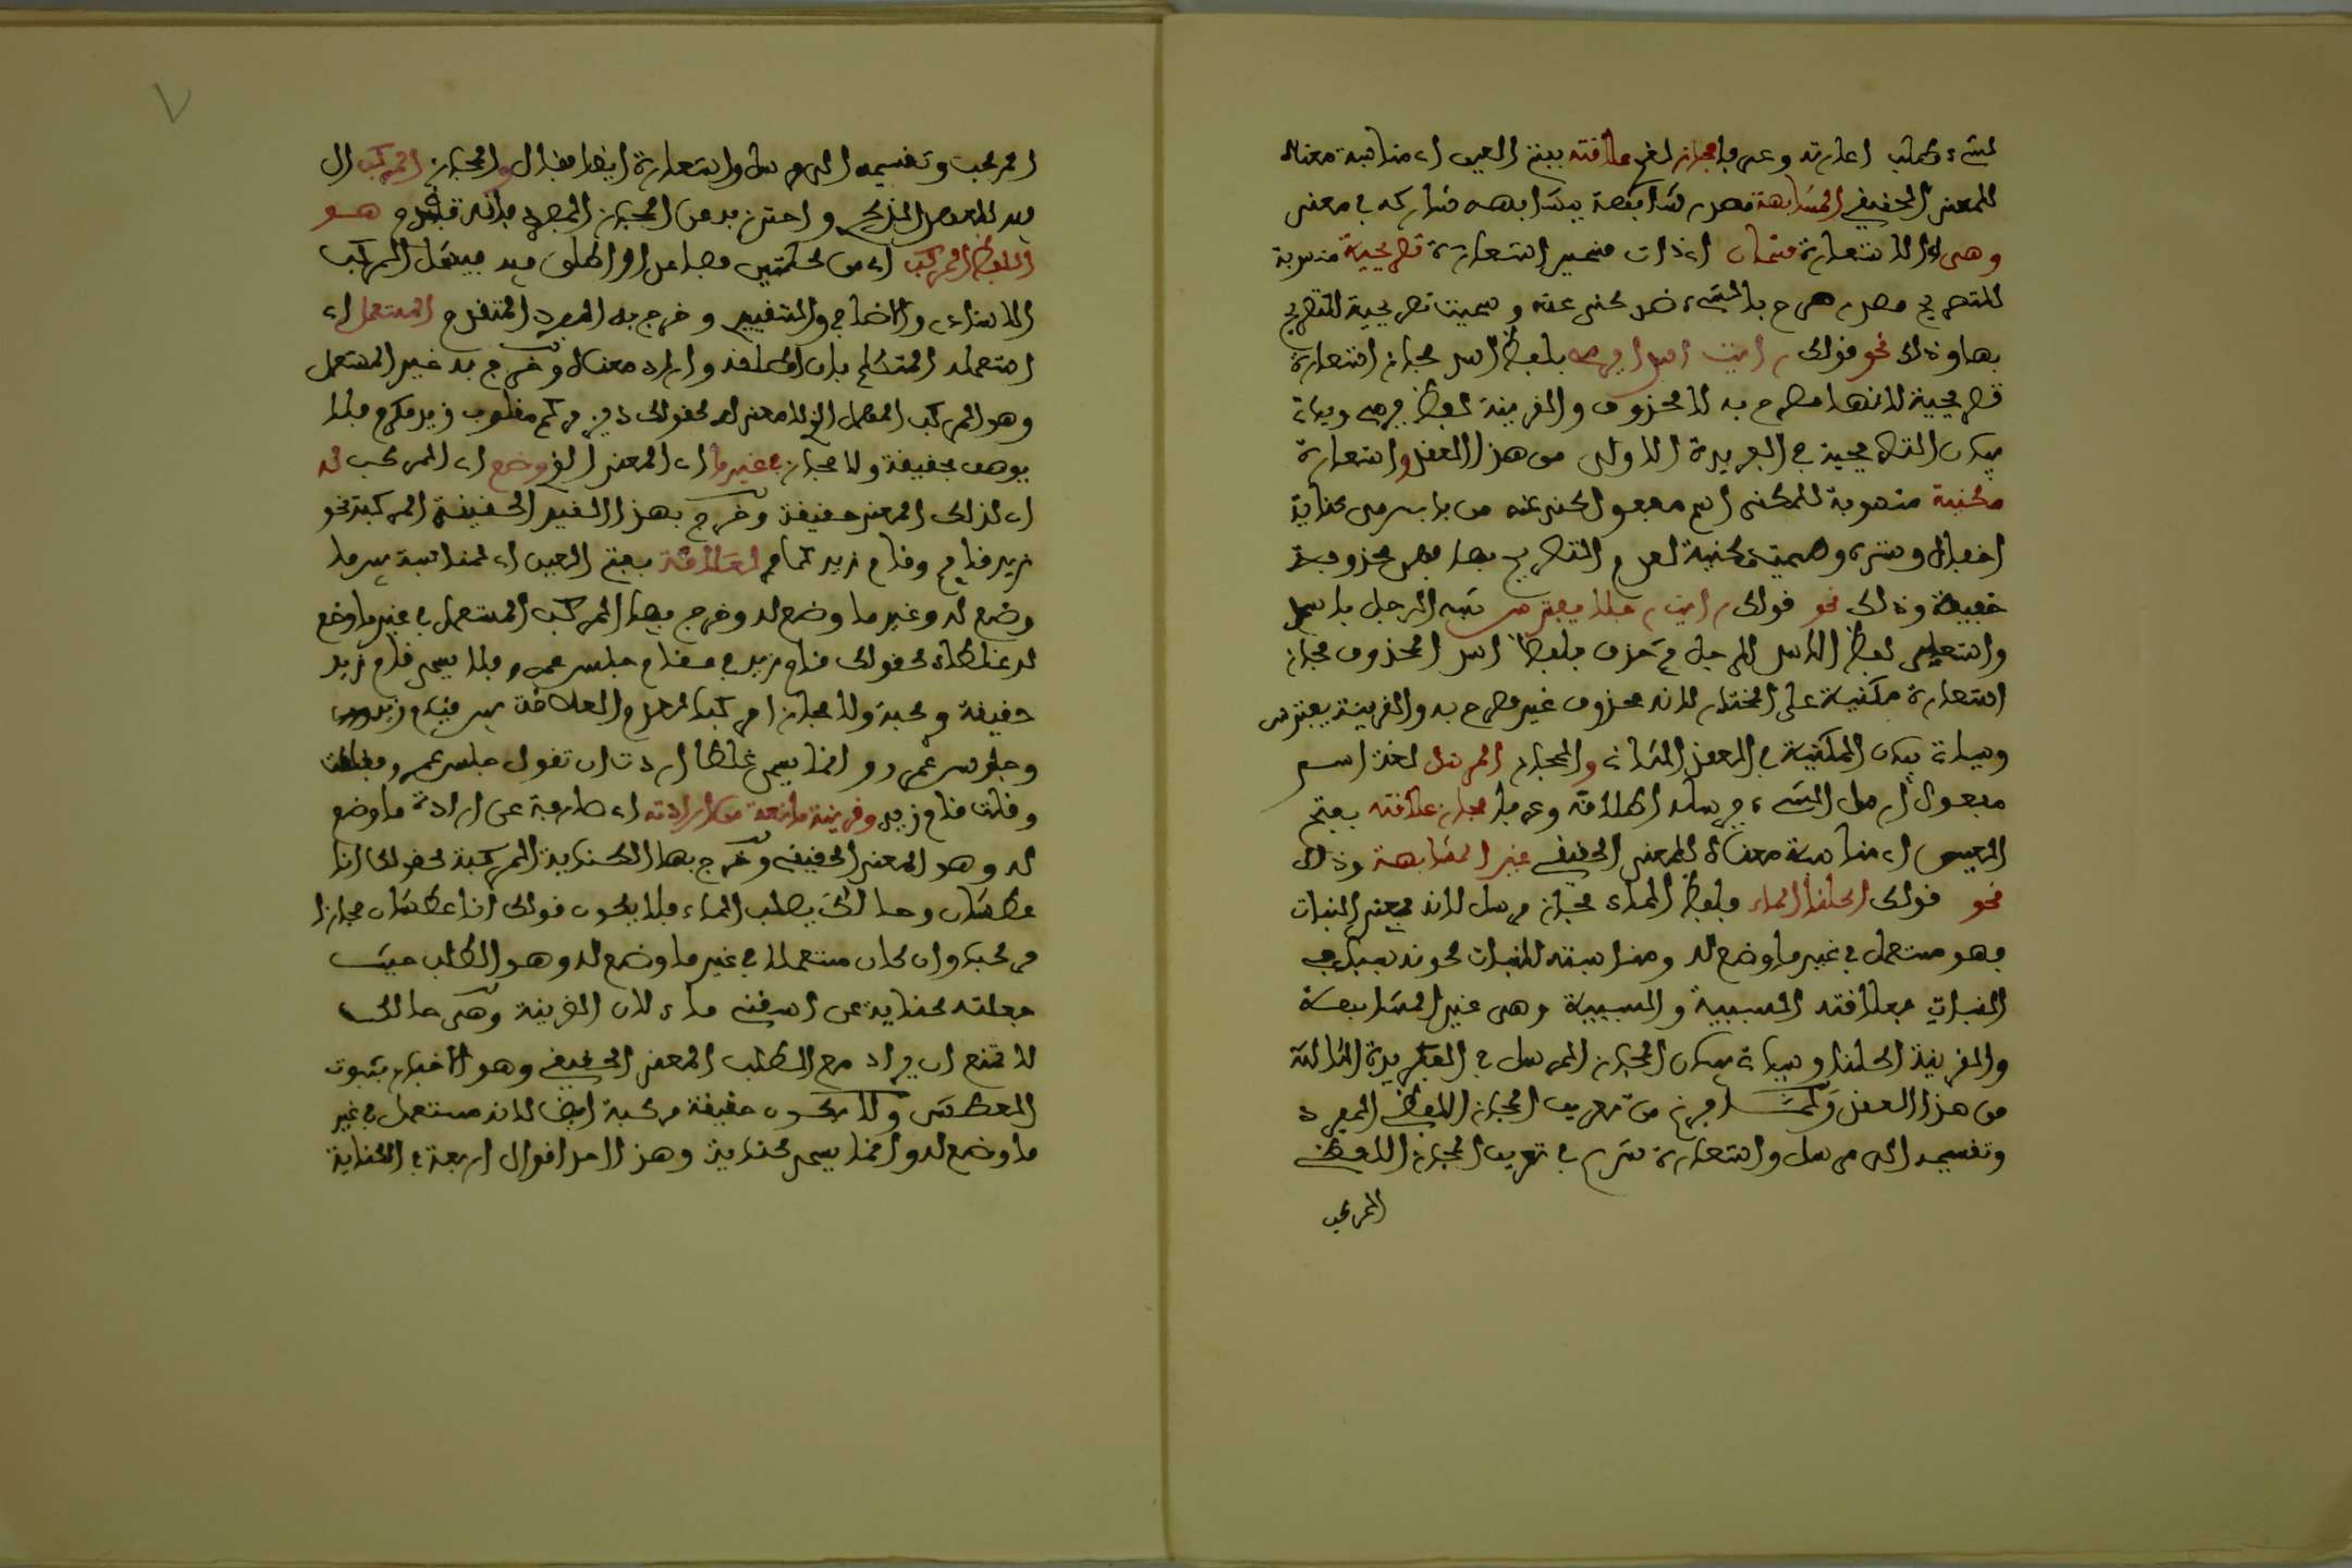 الشيء طلب اعارته وعرفا مجاز لغوي علاقته بفتح العين اي مناسبة معناه
للمعنى الحقيقي المشابهة مصدر شابهه يشابهه شاركه في معنى
وهي اي الاستعارة قسمان اي ذات قسمين استعارة تصريحية منسوبة
للتصريح مصدر صرح بالشيء ضد كنى عنه وسميت تصريحية للتصريح
بها وذلك نحو قولك رايت اسدا يرمي بلفظ اسد مجاز استعارة
تصريحية لانها مصرح به لا محذوف والقرينة لفظ يرمي وياتي
بيان التصريحية في الفريدة الاولى من هذا العقد واستعارة
مكنية منسوبة للمكنى اسم مفعول كنى عنه من باب رمى كناية
اخفاه وستره وسميت مكنية لعدم التصريح بها فهي محذوفة
خفية وذلك نحو قولك رايت رجلا يفترس شبه الرجل بالسد
واستعير لفظ الاسد للرجل ثم حذف فلفظ اسد المحذوف مجاز
استعارة مكنية على المختار لانه محذوف غير مصرح به والقرينة يفترس
وسياتي بيان المكنية في العقد الثاني والمجاز المرسل لغة اسم
مفعول ارسل الشيء يرسله اطلاقه وعرفا مجاز علاقته بفتح
العين اي مناسبة معناه للمعنى الحقيقي غير المشابهة وذلك
نحو قولك اكلنا الماء فلفظ الماء مجاز مرسل لانه بمعنى النبات
فهو مستعمل في غير ما وضع له ومناسبته للنبات كونه سببا في
النبات فعلاقته المسببية والسببية وهي غير المشابهة
والقرينة اكلنا وسياتي بيان المجاز المرسل في الفريدة الثالثة
من هذا العقد ولما فرغ من تعريف المجاز اللفظي المفرد
وتقسيمه الى مرسل واستعارة شرع في تعريف المجاز اللفظي
المركب
المركب وتقسيمه الى مرسل واستعارة ايضا فقال والمجاز المركب ال
فيه للعهد الذكري واحترز به عن المجاز المفرد فانه تقدم هو
اللفظ المركب اي من كلمتين فصاعدا واطلق فيه فيشمل المركب
الاسنادي والاضافي والتقييدي وخرج به المفرد المتقدم المستعمل اي
استعمله المتكلم بان اطلقه واراد معناه وخرج به غير المستعمل
وهو المركب المهمل الذي لا معنى له كقولك ديز مركم مقلوب زيد مكرم فلا
يوصف بحقيقة ولا مجاز في غير ما اي المعنى الذي وضع اي المركب له
اي لذلك المعنى حقيقة وخرج بهذا القيد الحقيقة المركبة نحو
زيد قايم وقام زيد كما مر لعلاقة بفتح العين اي لمناسبة بين ما
وضع له وغير ما وضع له وخرج بها المركب المستعمل في غير ما وضع
له غلطا كقولك قام زيد في مقام جلس عمرو فلا يسمى قام زيد
حقيقة مركبة ولا مجازا مركبا لعدم العلاقة بين قيام زيد
وجلوس عمرو وانما يسمى غلطا اردت ان تقول جلس عمرو فغلطت
وقلت قام زيد وقرينة مانعة من ارادته اي صارفة عن ارادة ما وضع
له وهو المعنى الحقيقي وخرج بها الكناية المركبة كقولك انا
عطشان وحالك يطلب الماء فلا يكون قولك انا عطشان مجازا
مركبا وان كان مستعملا في غير ما وضع له وهو الطلب حيث
جعلته كناية عن اسقني ماء لان القرينة وهي حالك
لا تمنع ان يراد مع الطلب المعنى الحقيقي وهو الاخبار بثبوت
العطش ولا يكون حقيقة مركبة ايضا لانه مستعمل في غير
ما وضع له وانما يسمى كناية وهذا احد اقوال اربعة في الكناية